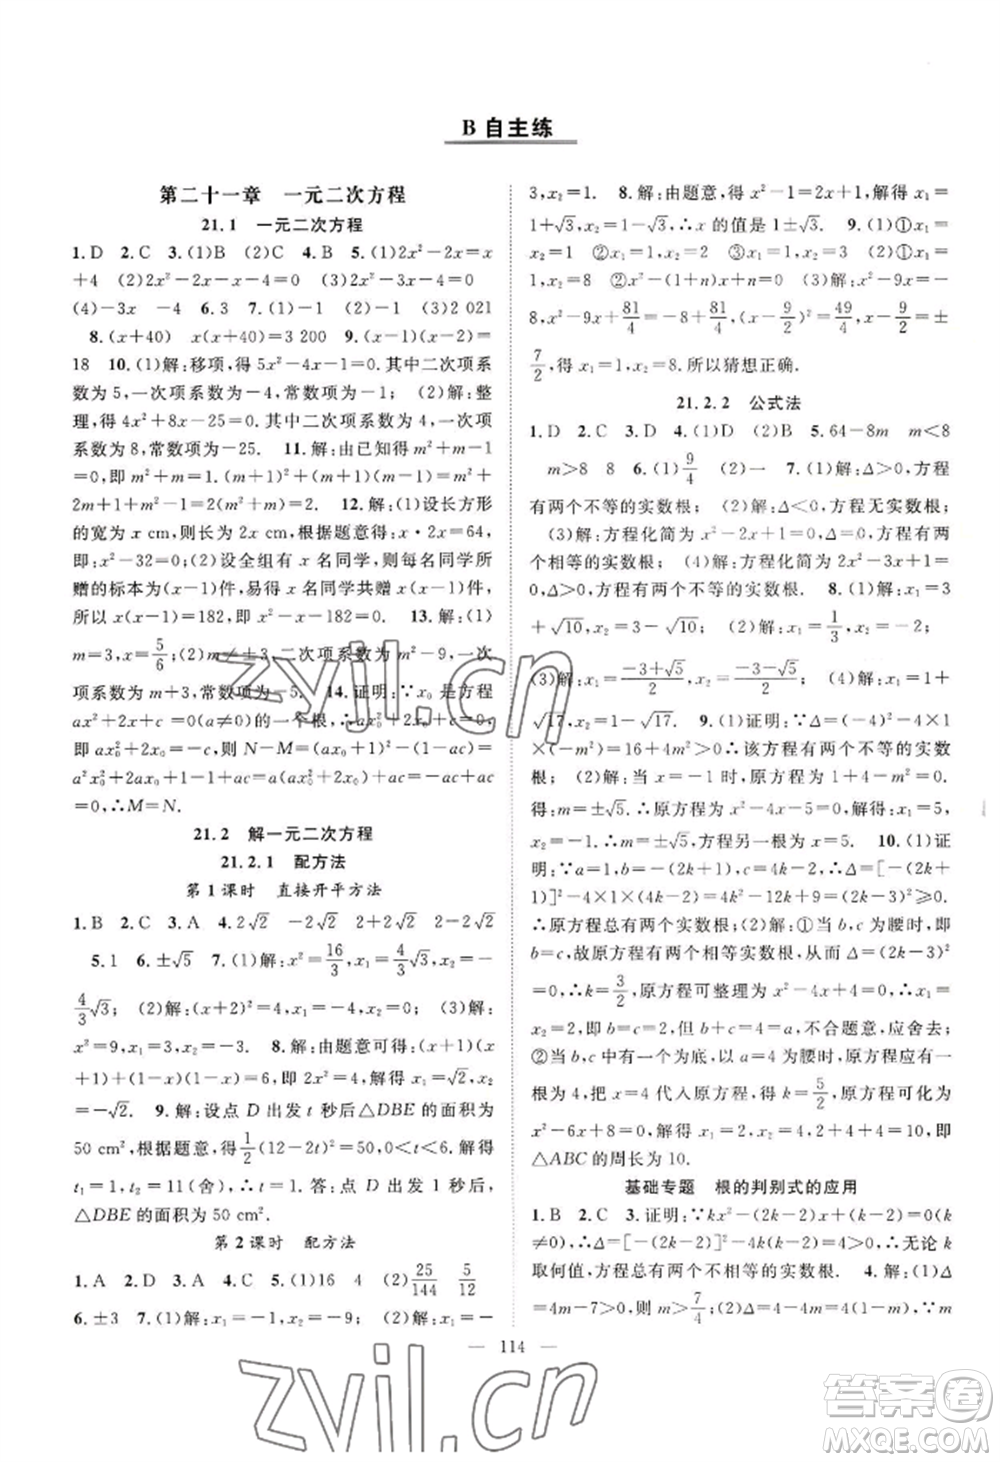 B 自主练
第二十一章 一元二次方程
21.1 一元二次方程
1.D 2.C 3.(1)B (2)C 4.B 5.(1)2x²-2x=x
+4 (2)2x²-2x-x-4=0 (3)2x²-3x-4=0
(4)-3x -4 6.3 7.(1)-1 (2)-1 (3)2 021
8.(x+40) x(x+40)=3 200 9.(x-1)(x-2)=
18 10.(1)解:移项,得 5x²-4x-1=0.其中二次项系
数为 5,一次项系数为-4,常数项为-1; (2)解:整
理,得 4x²+8x-25=0.其中二次项系数为 4,一次项
系数为 8,常数项为-25. 11.解:由题意,得 m²+m-1
=0,即 m²+m=1,∴(m+1)²+(m+1)(m-1)=m²+
2m+1+m²-1=2(m²+m)=2. 12.解:(1)设长方形
的宽为 x cm,则长为 2x cm,根据题意,得 x·2x=64,
即 x²-32=0; (2)设全组有 x 名同学,则每名同学所
赠的标本为(x-1)件,那么 x 名同学共赠 x(x-1)件,
所以 x(x-1)=182,即 x²-x-182=0. 13.解:(1)
m=3,x=5/6; (2)m≠±3,二次项系数为 m²-9,一次
项系数为 m+3,常数项为-5. 14.证明:∵x₀ 是方程
ax²+2x+c=0(a≠0)的一个根,∴ax₀²+2x₀+c=0,
即 ax₀²+2x₀=-c,则 N-M=(ax₀+1)²-(1-ac)=
a²x₀²+2ax₀+1-1+ac=a(ax₀²+2x₀)+ac=-ac+ac
=0,∴M=N.
21.2 解一元二次方程
21.2.1 配方法
第 1 课时 直接开平方法
1.B 2.C 3.A 4.2√2 -2√2 2+2√2 2-2√2
5.1 6.±√5 7.(1)解:x²=16/3,x₁=4/3√3,x₂=-
4/3√3; (2)解:x₁=1,x₂=-4; (3)解:
x²=9,x₁=3,x₂=-3. 8.解:由题意可得:(x+1)(x
-1)=1,整理得 x²=2,解得 x₁=√2,x₂
=-√2. 9.解:设点 D 出发 t 秒后△DBE 的面积为
50 cm²,根据题意,得 1/2(12-2t)²=50,0<t<6,解得
t₁=1,t₂=11(舍),t=1.答:点 D 出发 1 秒后,
△DBE 的面积为 50 cm².
第 2 课时 配方法
1.A 2.D 3.A 4.C 5.(1)16 4 (2)25/144 5/12
6.±3 7.(1)解:x₁=-1,x₂=-9; (2)解:x₁=
3,x₂=1. 8.解:由题意,得 x²-1=2(x+
1+√3,x₂=1-√3,∴x 的值是 1±√3. 9.(1)①x₁=
1,x₂=2 ②x₁=1,x₂=3 ③x₁=
1,x₂=8. (2)x²-(1+n)x+n=0 (3)解:x²-9x=-
8,x²-9x+81/4=-8+81/4,(x-9/2)²=49/4,x-9/2=±
7/2,得 x₁=1,x₂=8.所以猜想正确.
21.2.2 公式法
1.D 2.C 3.A 4.(1)D (2)B 5.64-8m m<8
m>8 8 6.(1)9/4 (2)一 7.(1)解:Δ>0,方程
有两个不等的实数根; (2)解:Δ<0,方程无实数根;
(3)解:方程化简为 x²-2x+1=0,Δ=0,方程有
两个相等的实数根; (4)解:方程化简为 2x²-3x+1=
0,Δ>0,方程有两个不等的实数根. 8.(1)解:x₁=3
+√10,x₂=3-√10; (2)解:x₁=1/3,x₂=-2;
(3)解:x₁=(-3+√5)/2,x₂=(-3-√5)/2; (4)解:x₁=1+
√17,x₂=1-√17. 9.(1)证明:∵Δ=(-4)²-4×1
×(-m²)=16+4m²>0,∴该方程有两个不等的实数
根; (2)解:当 x=-1 时,原方程为 1+4-m²=0.解
得:m=±√5,原方程为 x²-4x-5=0,解得:x₁=5,
x₂=-1.∴m=±√5,方程另一根为 x=5. 10.(1)证
明:∵a=1,b=-(2k+1),∴Δ=[-(2k+
1)]²-4×1×4(k-1/2)=4k²-12k+9=(2k-3)²≥0.
∴原方程总有两个实数根; (2)解:①当 b,c 为腰时,即
b=c,故原方程有两个相等实数根,从而 Δ=(2k-3)²
=0,∴k=3/2,原方程可整理为 x²-4x+4=0,解得 x₁=
x₂=2,即 b=c=2,b+c=4=a,不合题意,应舍去;
②当 b,c 中有一个为底,a=4 为腰时,原方程应有一
根为 4,把 x=4 代入原方程,得 k=5/2,原方程可化为
x²-6x+8=0,解得 x₁=2,x₂=4,4+4+2=10,即
△ABC 的周长为 10.
基础专题 根的判别式的应用
1.B 2.C 3.证明:∵kx²-(2k-2)x+(k-2)=0(k
≠0),∴Δ=[-(2k-2)]²-4k(k-2)=4>0,∴无论 k
取何值,方程总有两个不等的实数根. 4.解:(1)Δ
=4m-7>0,则 m>7/4; (2)∵x₁=1,∴∵m
114
zyjl.cn
zyjl.cn
答案卷
MXQE.COM